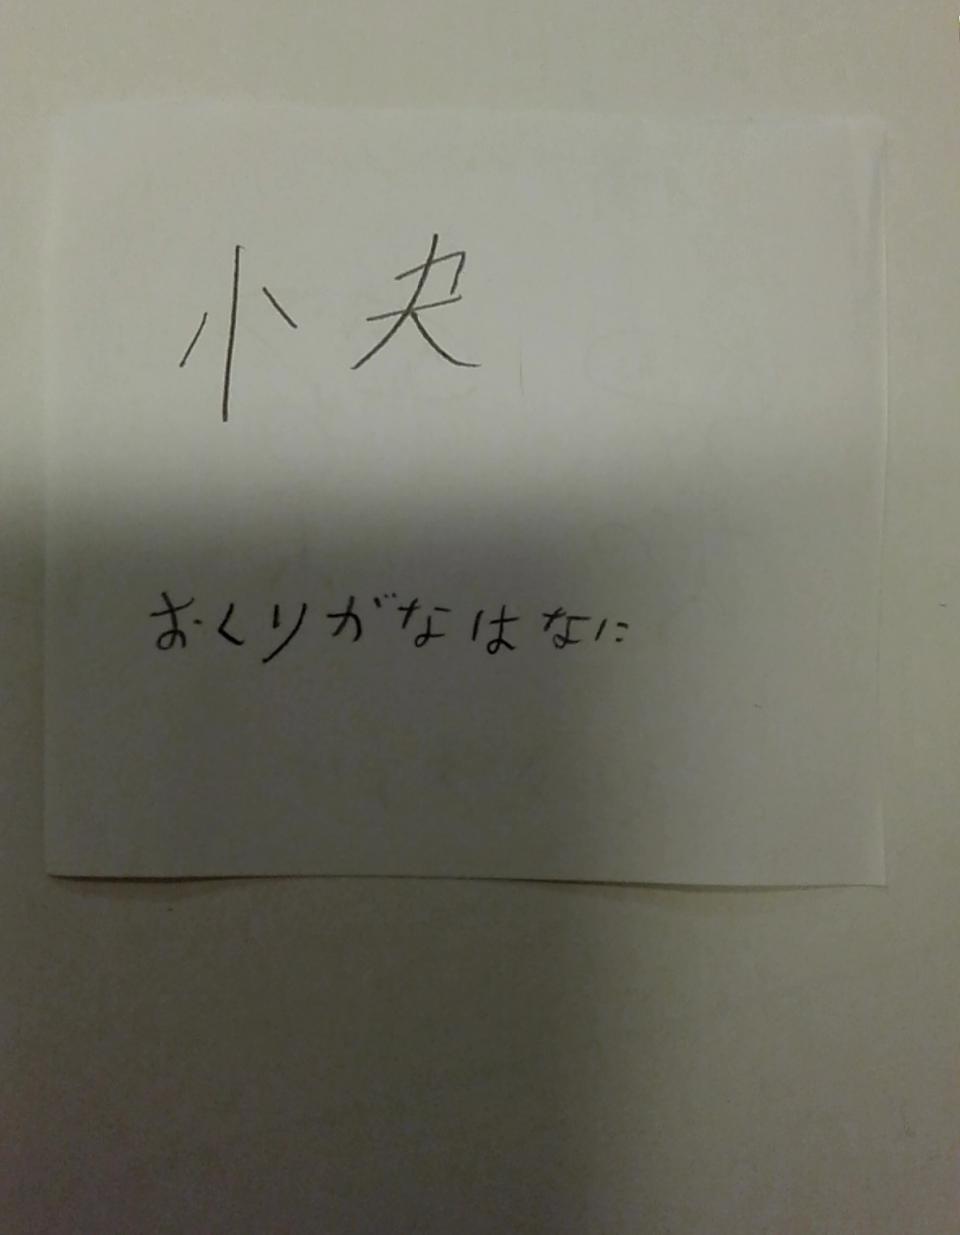 小夬
おくりがなはなに